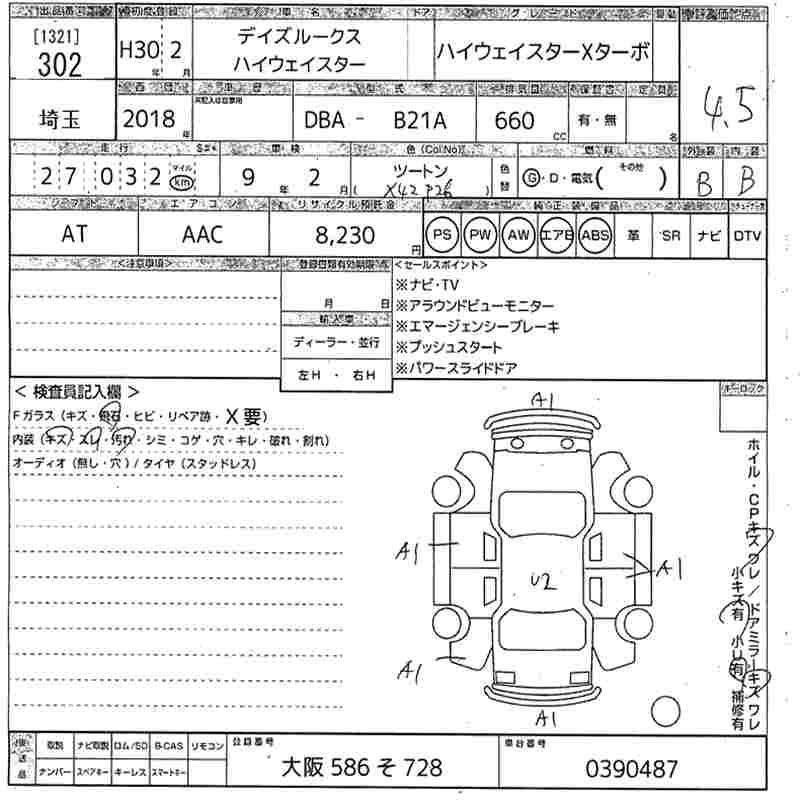 出品番号 初度登録 車名 ドア グレード 評価点
[1321]
302
H30年 2月
デイズルークス
ハイウェイスター
ハイウェイスターXターボ
4.5
埼玉
車歴 型式 排気量 定員
2018年
DBA - B21A
660 CC
有・無
名
走行 車検 色(Col No) 燃料 外装 内装
27032 マイル km
9年 2月
ツートン
色替
G・D・電気( その他 )
B
B
シフト エアコン リサイクル預託金 純正装備品
AT
AAC
8,230円
PS PW AW エアB ABS 革 SR ナビ DTV
<注意事項> 登録書類有効期限 <セールスポイント>
月 日
※ナビ・TV
※アラウンドビューモニター
輸入車
※エマージェンシーブレーキ
ディーラー・並行
※プッシュスタート
左H ・ 右H
※パワースライドドア
< 検査員記入欄 >
Fガラス(キズ・飛石・ヒビ・リペア跡・X要)
内装(キズ・スレ・汚れ・シミ・コゲ・穴・キレ・破れ・割れ)
オーディオ(無し・穴)/タイヤ(スタッドレス)
キーロック
A1
A1
A1
U2
A1
A1
ホイル・CPキズワレ/ドアミラーキズワレ
小キズ有 小U有 補修有
後送品
取説 ナビ取説 ロム/SD B-CAS リモコン
ナンバー スペアキー キーレス スマートキー
登録番号
大阪 586 そ 728
車台番号
0390487